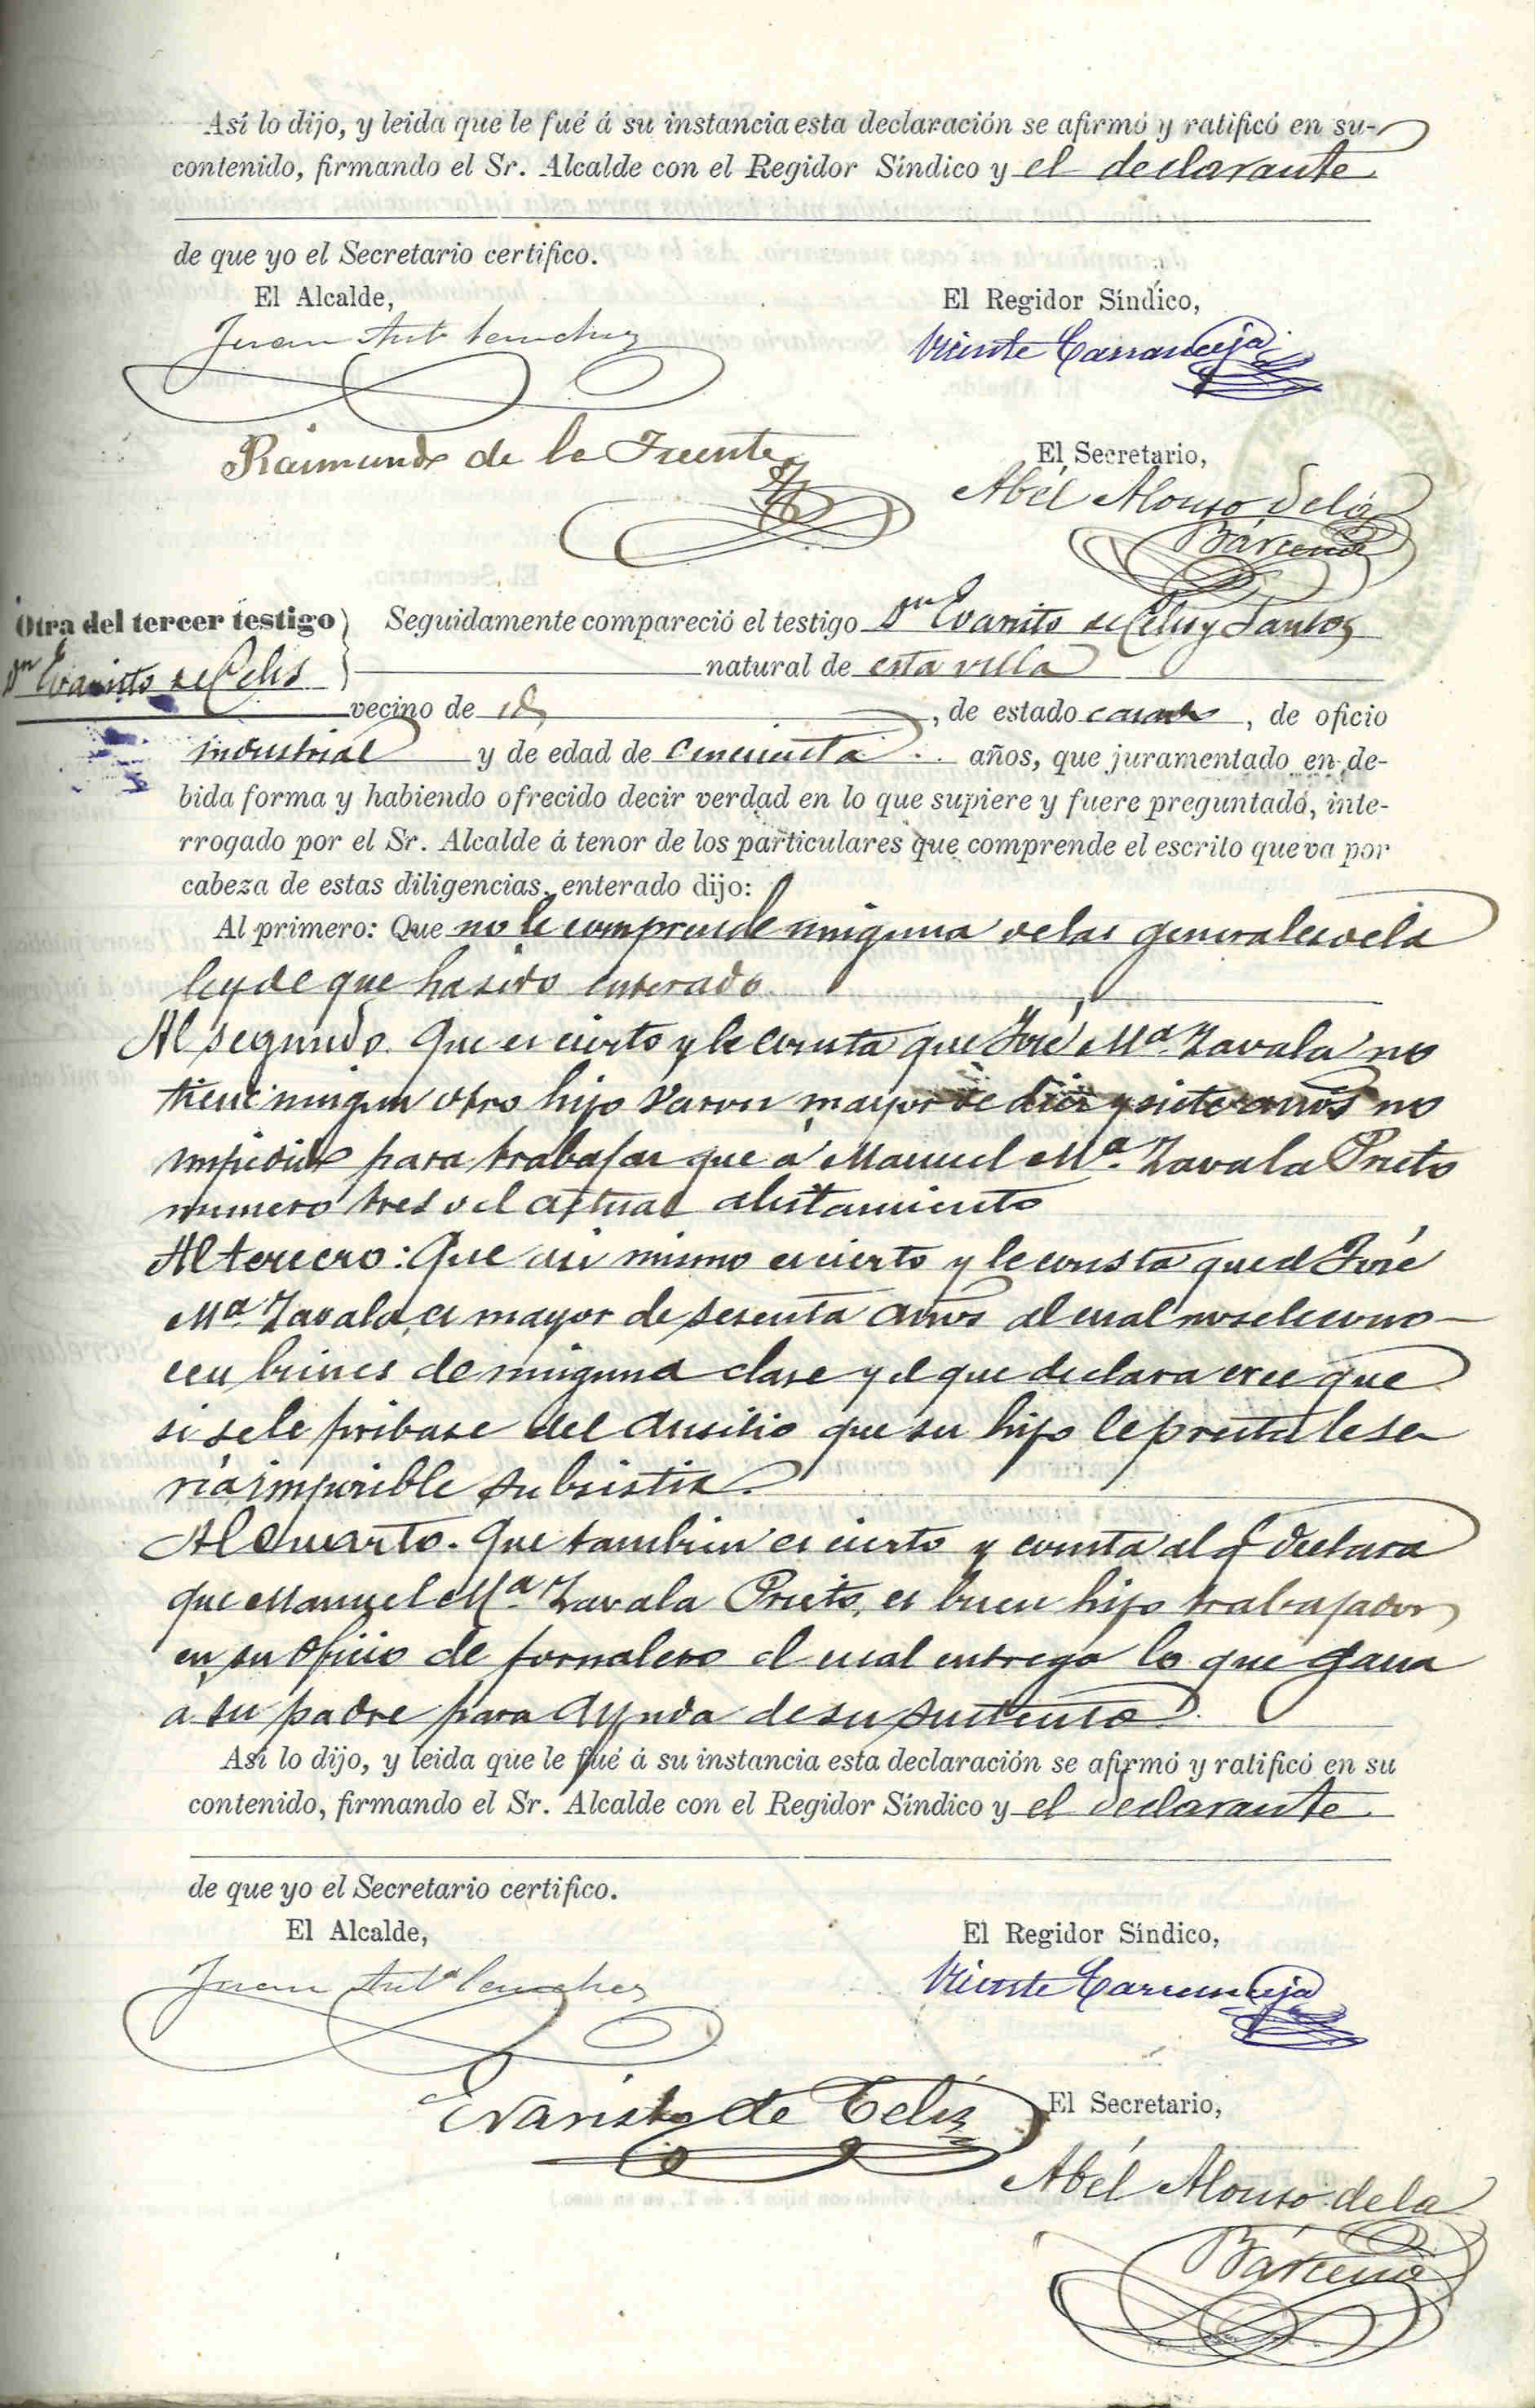 Así lo dijo, y leida que le fué á su instancia esta declaración se afirmó y ratificó en su
contenido, firmando el Sr. Alcalde con el Regidor Síndico y el declarante
de que yo el Secretario certifico.
El Alcalde,
El Regidor Síndico,
Juan Antº Sanchez
Vicente Carranceja
Raimundo de la Fuente
El Secretario,
Abél Alonso de la
Bárcena
Otra del tercer testigo
Dn Evaristo de Celis
Seguidamente compareció el testigo Dn Evaristo de Celis y Santos
natural de esta villa
vecino de id, de estado casado, de oficio
industrial y de edad de cincuenta años, que juramentado en de-
bida forma y habiendo ofrecido decir verdad en lo que supiere y fuere preguntado, inte-
rrogado por el Sr. Alcalde á tenor de los particulares que comprende el escrito que va por
cabeza de estas diligencias, enterado dijo:
Al primero: Que no le comprende ninguna de las generales de la
ley de que ha sido enterado
Al segundo. Que es cierto y le consta que José Mª. Zavala no
tiene ningun otro hijo varon mayor de diez y siete años no
impedido para trabajar que á Manuel Mª. Zavala Prieto
numero tres del actual alistamiento
Al tercero: Que asi mismo es cierto y le consta que el José
Mª Zavala es mayor de sesenta años al cual no se le cono-
cen bienes de ninguna clase y el que declara cree que
si se le pribase del ausilio que su hijo le presta le se
ría imposible subsistir.
Al Cuarto. Que tambien es cierto y consta al q declara
que Manuel Mª. Zavala Prieto, es buen hijo trabajador
en su oficio de jornalero el cual entrega lo que gana
a su padre para ayuda de su sustento.
Así lo dijo, y leida que le fué á su instancia esta declaración se afirmó y ratificó en su
contenido, firmando el Sr. Alcalde con el Regidor Síndico y el declarante
de que yo el Secretario certifico.
El Alcalde,
El Regidor Síndico,
Juan Antº Sanchez
Vicente Carranceja
Evaristo de Celis
El Secretario,
Abél Alonso de la
Bárcena